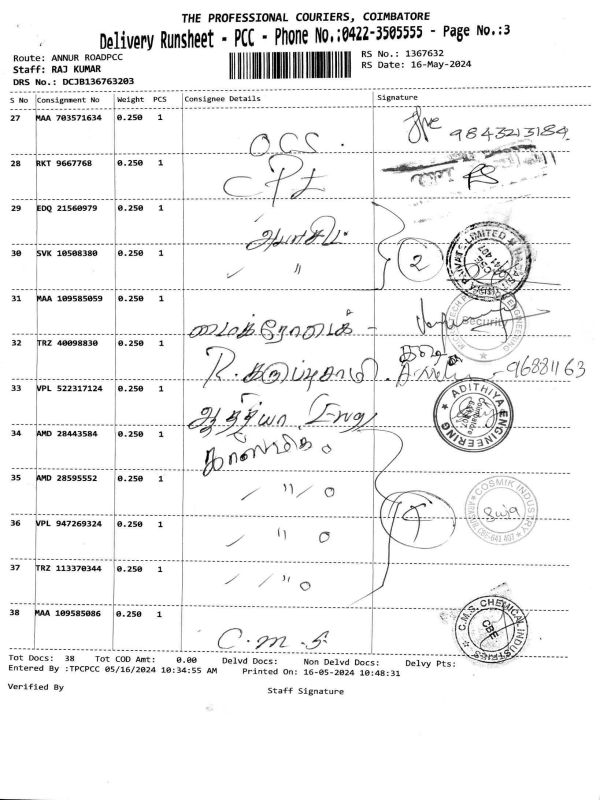 THE PROFESSIONAL COURIERS, COIMBATORE
Delivery Runsheet - PCC - Phone No.:0422-3505555 - Page No.:3
Route: ANNUR ROADPCC
RS No.: 1367632
Staff: RAJ KUMAR
RS Date: 16-May-2024
DRS No.: DCJB136763203
S No Consignment No Weight PCS Consignee Details Signature
27 MAA 703571634 0.250 1
9843213184
28 RKT 9667768 0.250 1
29 EDQ 21560979 0.250 1
30 SVK 10508380 0.250 1 〃 2
31 MAA 109585059 0.250 1
Security
32 TRZ 40098830 0.250 1
R. கருப்புசாமி
96881163
33 VPL 522317124 0.250 1
ஆதித்யா Eng
ADITHIYA ENGINEERING
34 AMD 28443584 0.250 1
35 AMD 28595552 0.250 1 〃
COSMIK INDUSTRY
36 VPL 947269324 0.250 1 〃
37 TRZ 113370344 0.250 1 〃
38 MAA 109585086 0.250 1
C.M.S
C.M.S. CHEMICAL INDUSTRIES
CBE
Tot Docs: 38 Tot COD Amt: 0.00 Delvd Docs: Non Delvd Docs: Delvy Pts:
Entered By :TPCPCC 05/16/2024 10:34:55 AM Printed On: 16-05-2024 10:48:31
Verified By
Staff Signature